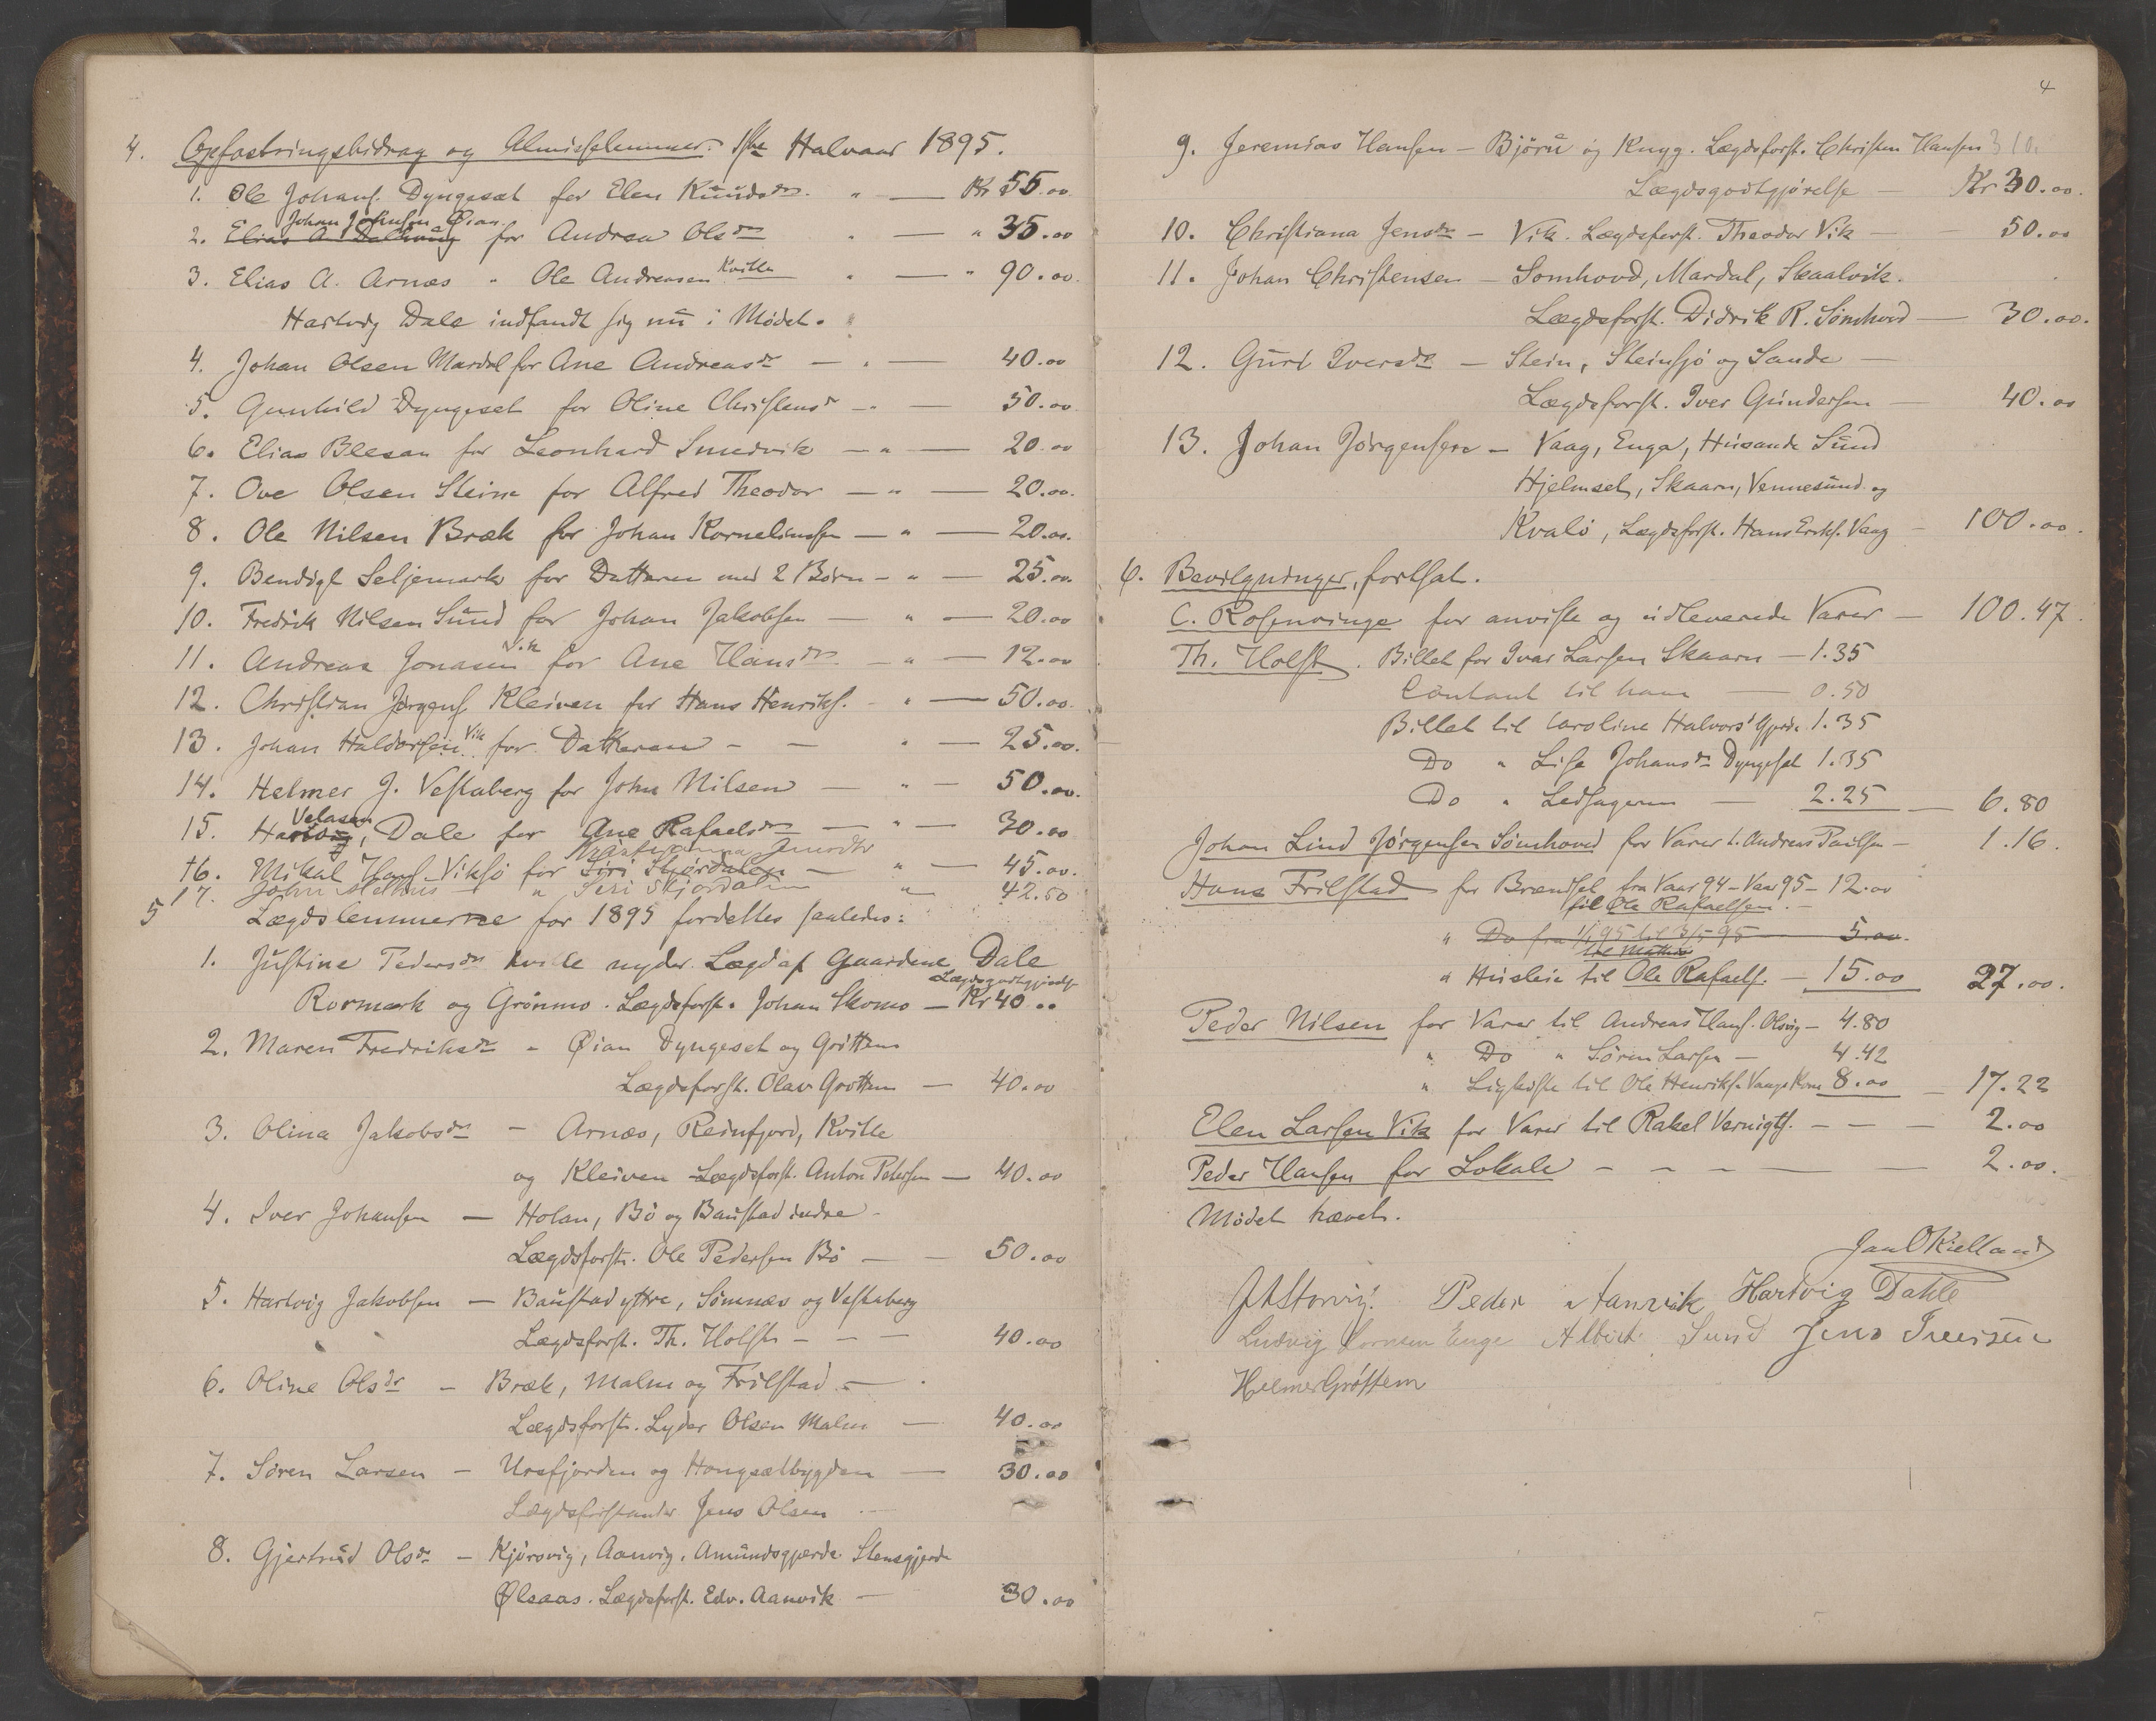 4. Opfostringsbidrag og Almisselemmer. 1ste Halvaar 1895.
1. Ole Johans. Dyngeset for Elen Knudsdr. " — Kr 55.00
Johan Johnsen Øian
2. Elias A. Dalhaug for Andrea Olsdr " — " 35.00
3. Elias A. Arnæs " Ole Andreasen Kville " — " 90.00
Hartvig Dale indfandt sig nu i Mødet.
4. Johan Olsen Mardal for Ane Andreasdr — " — 40.00
5. Gunhild Dyngeset for Oline Christensdr — " — 50.00
6. Elias Blesan for Leonhard Smedvik — " — 20.00
7. Ove Olsen Steine for Alfred Theodor — " — 20.00
8. Ole Nilsen Bræk for Johan Korneliussen — " — 20.00
9. Bendigt Seljemark for Datteren med 2 Børn — " — 25.00
10. Fredrik Nilsen Sund for Johan Jakobsen — " — 20.00
11. Andreas Jonasen Vik for Ane Hansdr. — " — 12.00
12. Christian Jørgens. Kleiven for Hans Henriks. — " — 50.00
13. Johan Haldorsen Vik for Datteren — — " — 25.00
14. Helmer J. Vestaberg for John Nilsen — " — 50.00
Velasen
15. Dale for Ane Rafaelsdr — " — 30.00
16. Mikal Hans. Viksø for Siri Skjørdalen — " — 45.00
17. John Melhus — " Siri Skjordalen " 42.50
5 Lægdslemmerne for 1895 fordeltes saaledes:
1. Justine Pedersdr Kville nyder Lægd af Gaardene Dale
Lægdsgodtgjørelse
Rormark og Grønmo. Lægdsforst. Johan Skomo — Kr 40 ..
2. Maren Fredriksdr — Øian Dyngeset og Grøttem
Lægdsforst. Olav Grøttem — 40.00
3. Olina Jakobsdr — Arnæs, Reinfjord, Kville
og Kleiven Lægdsforst. Anton Petersen — 40.00
4. Iver Johansen — Holan, Bø og Baustad indre —
Lægdsforst. Ole Pedersen Bø — — 50.00
5. Hartvig Jakobsen — Baustad yttre, Sømnæs og Vestaberg
Lægdsforst. Th. Holst — — — 40.00
6. Oline Olsdr — Bræk, Malm og Frilstad —
Lægdsforst. Lyder Olsen Malm — 40.00
7. Søren Larsen — Ursfjorden og Hongsetbygden — 30.00
Lægdsforstander Jens Olsen —
8. Gjertrud Olsdr — Kjørsvig, Aanvig, Amundsgjerde Stensgjerde
Ølsaas. Lægdsforst. Edv. Aanvik — 30.00
4
9. Jeremias Hansen — Bjøru og Knyg. Lægdsforst. Christen Hansen
Lægdsgodtgjørelse — Kr 30.00
10. Christiana Jensdr — Vik. Lægdsforst. Theodor Vik — 50.00
11. Johan Christensen — Somhovd, Mardal, Skaalvik.
Lægdsforst. Didrik R. Sømhovd — 30.00.
12. Guri Iversdr — Stein, Steinsjø og Sande —
Lægdsforst. Iver Gundersen — 40.00
13. Johan Jørgensen — Vaag, Enga, Husande Sund
Hjelmset, Skaarn, Vennesund og
Kvalø, Lægdsforst. Hans Eriks. Vaag — 100.00.
6. Bevilgninger, fortsat.
C. Rosenvinge for anviste og udleverede Varer — 100.47
Th. Holst. Billet for Ivar Larsen Skaarn — 1.35
Contant til ham — 0.50
Billet til Caroline Halvors' Gjerde 1.35
Do " Lise Johansdr Dyngeset 1.35
Do " Ledsageren — 2.25 — 6.80
Johan Lind Jørgensen Sømhovd for Varer t. Andreas Paulsen — 1.16.
Hans Frilstad for Brændsel fra Vaar 94 — Vaar 95 — 12.00
til Ole Rafaelsen. —
" Do fra 1/1 95 til 3/5 95 — 5.00.
" Husleie til Ole Rafaels. — 15.00 27.00.
Peder Nilsen for Varer til Andreas Hans. Olsvig — 4.80
" Do " Søren Larsen — 4.42
" Ligkiste til Ole Henriks. Vaags Kone 8.00 — 17.22
Elen Larsen Vik for Varer til Rakel Vernigts. — — — 2.00
Peder Hansen for Lokale — — — — 2.00.
Mødet hævet.
Jan O Kielland
JAStorvig. Peder Aanvik Hartvig Dahle
Ludvig Enge Albert Sund Jens Iversen
Helmer Grøttem